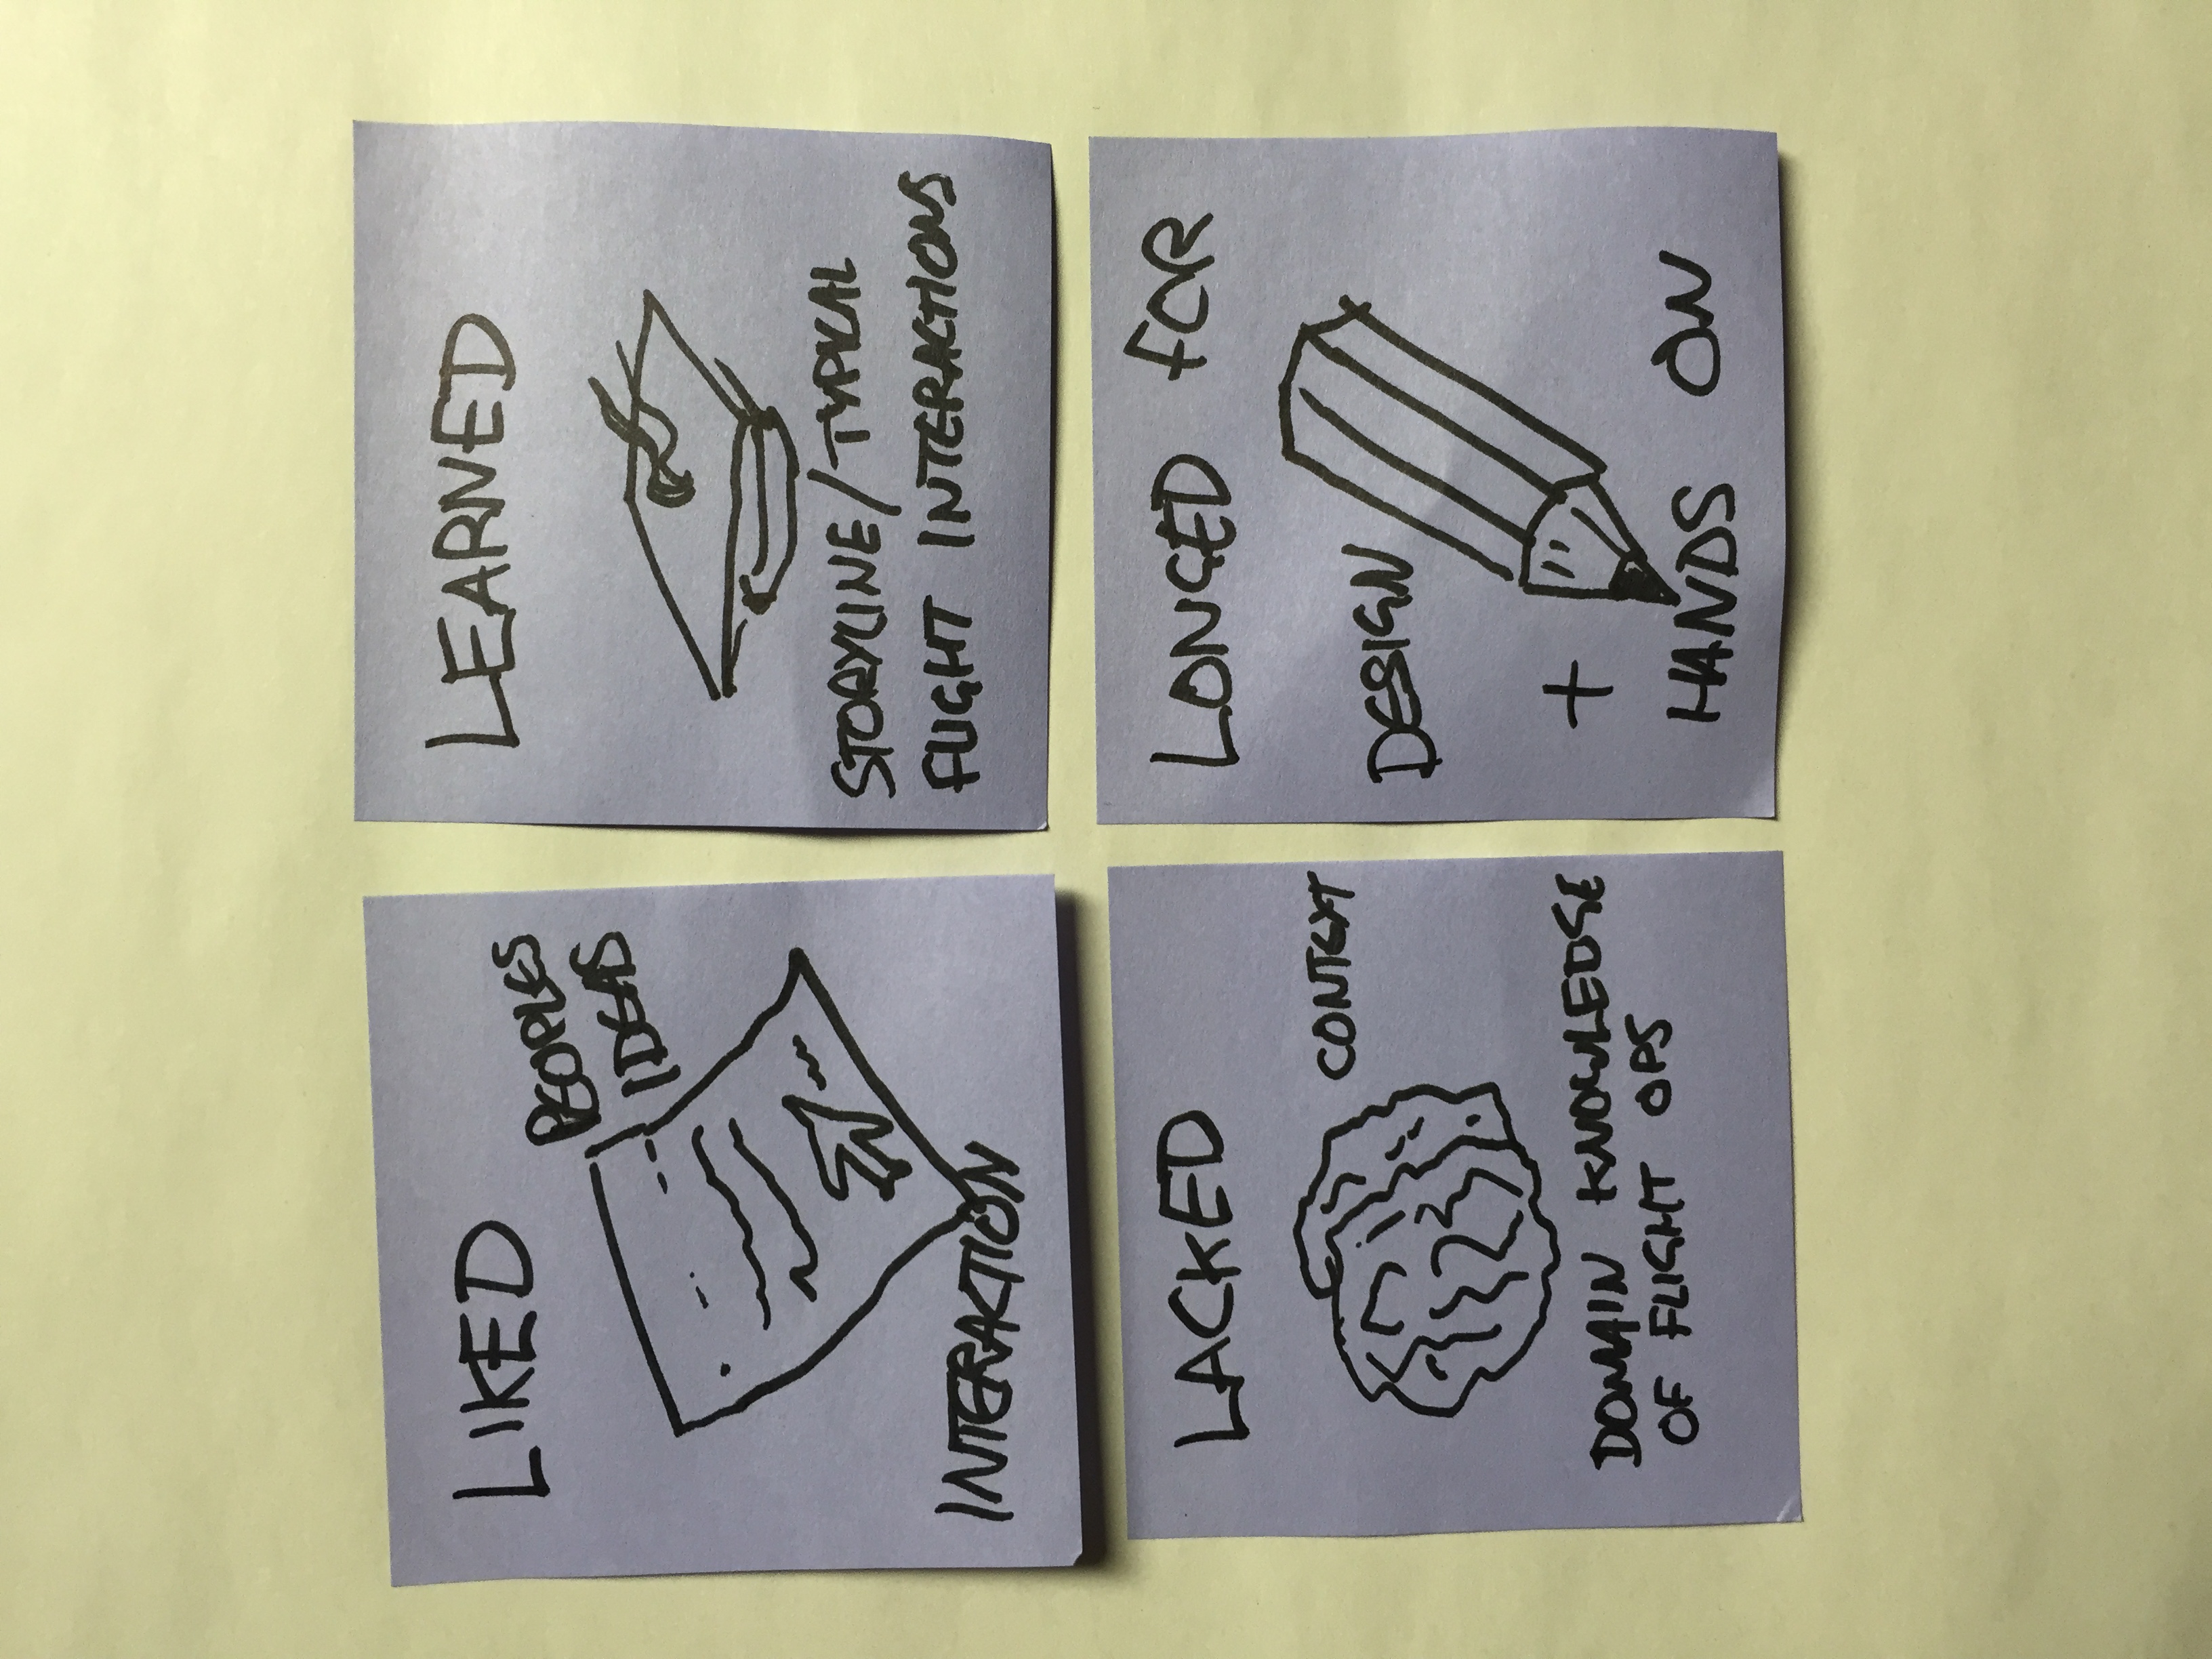 LIKED
PEOPLES
IDEAS
INTERACTION
LEARNED
STORYLINE/TYPICAL
FLIGHT INTERACTIONS
LACKED
CONTEXT
DOMAIN KNOWLEDGE
OF FLIGHT OPS
LONGED FOR
DESIGN
+
HANDS ON